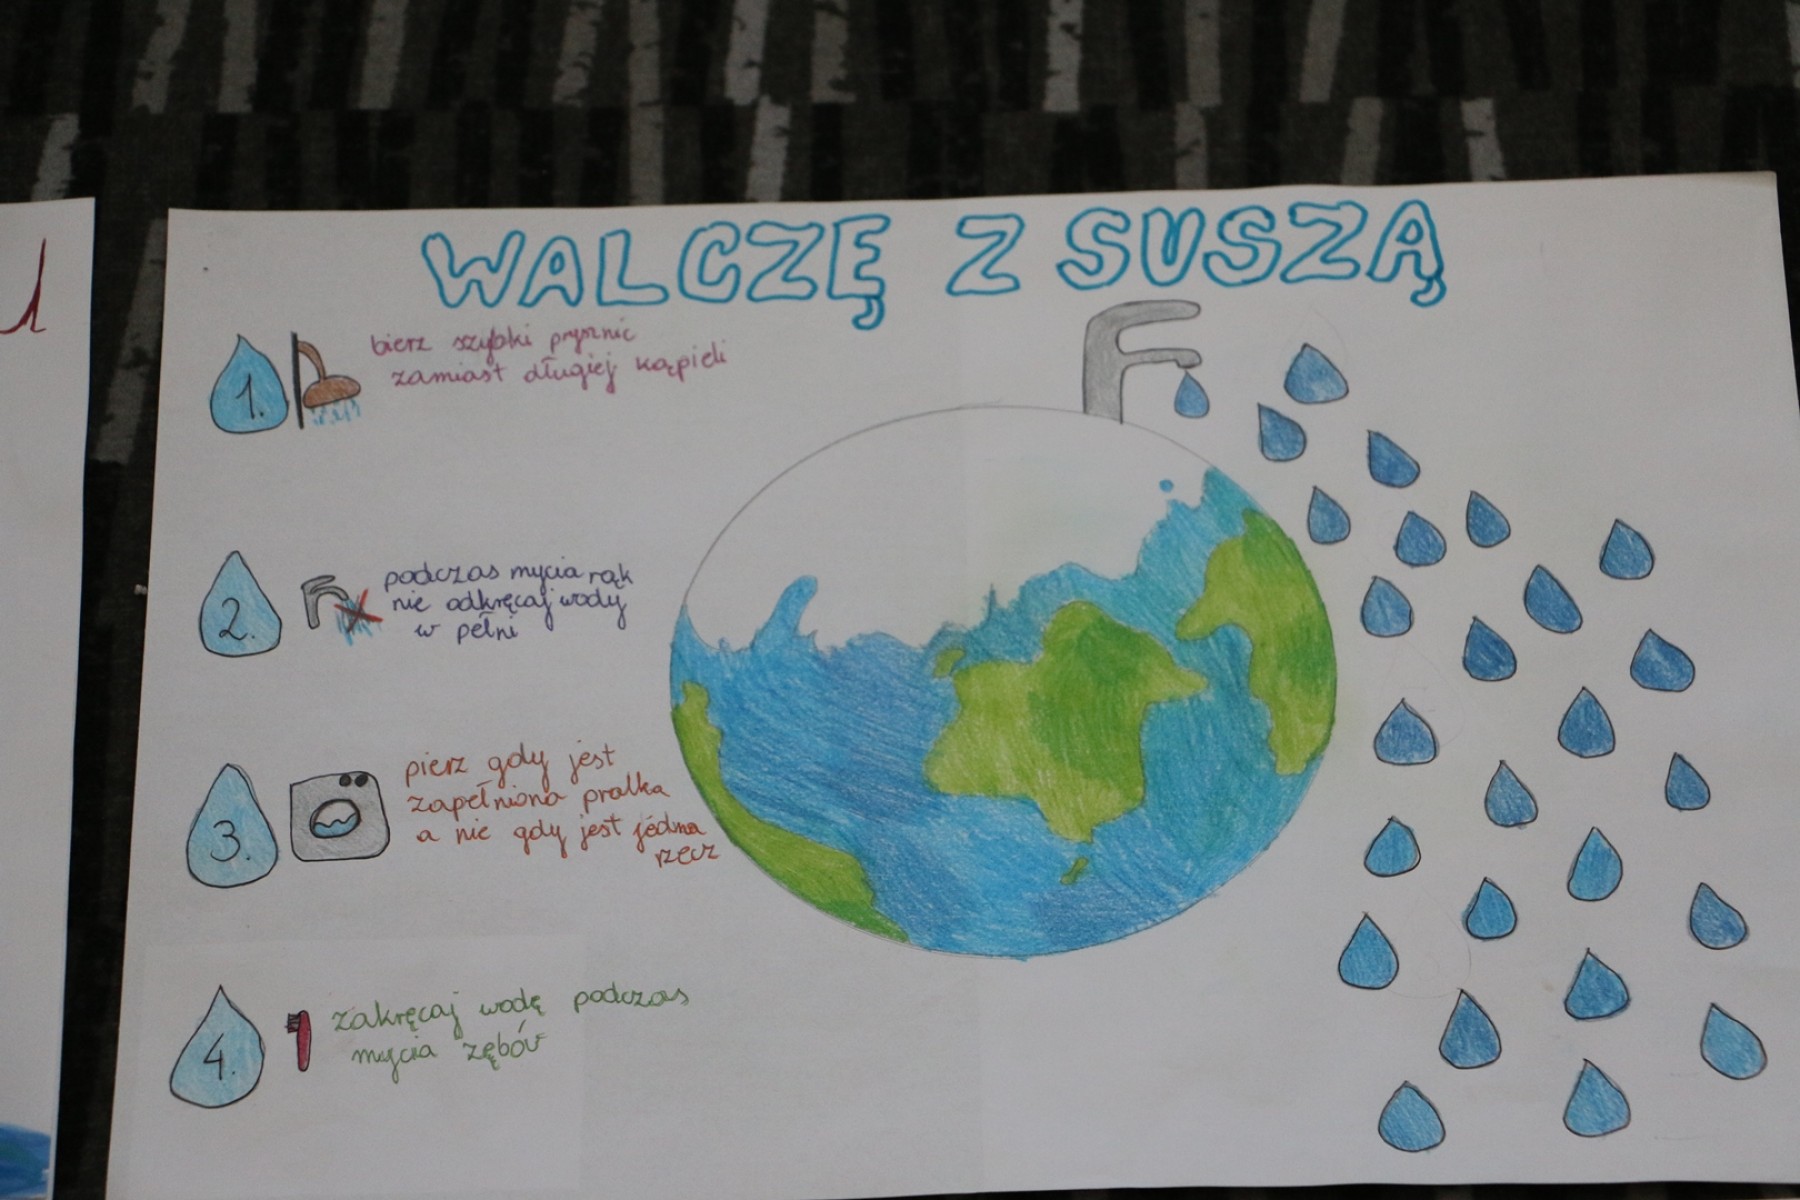 WALCZĘ Z SUSZĄ
1.
bierz szybki prysznic
zamiast długiej kąpieli
2.
podczas mycia rąk
nie odkręcaj wody
w pełni
3.
pierz gdy jest
zapełniona pralka
a nie gdy jest jedna
rzecz
4.
zakręcaj wodę podczas
mycia zębów